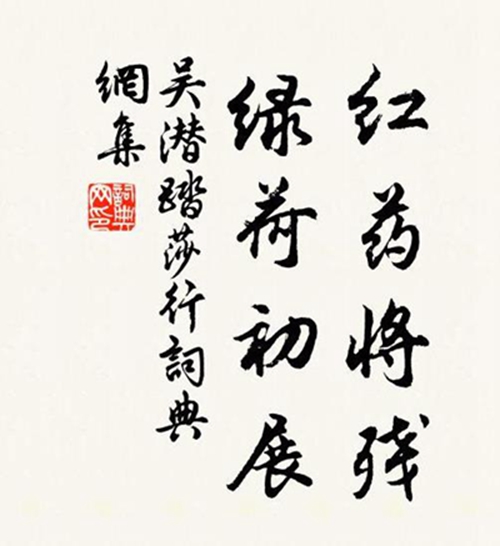 红药将残
绿荷初展
吴潜踏莎行詞典
網集
詞典
网印